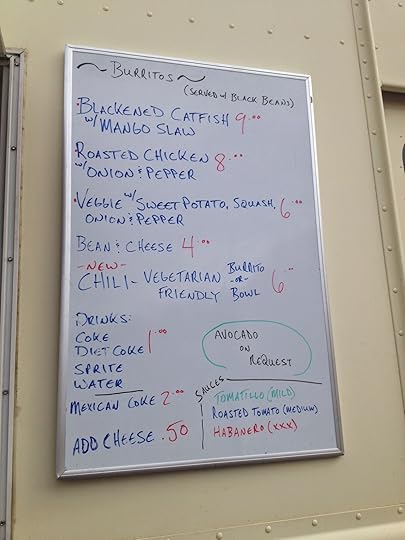 ~ BURRITOS ~
(SERVED w/ BLACK BEANS)
BLACKENED CATFISH 9.00
w/ MANGO SLAW
ROASTED CHICKEN 8.00
w/ ONION & PEPPER
VEGGIE w/ SWEET POTATO, SQUASH, 6.00
ONION & PEPPER
BEAN & CHEESE 4.00
-NEW-
CHILI - VEGETARIAN FRIENDLY BURRITO -OR- BOWL 6.00
DRINKS:
COKE
DIET COKE 1.00
SPRITE
WATER
MEXICAN COKE 2.00
ADD CHEESE .50
AVOCADO
ON
REQUEST
SAUCES
TOMATILLO (MILD)
ROASTED TOMATO (MEDIUM)
HABANERO (XXX)